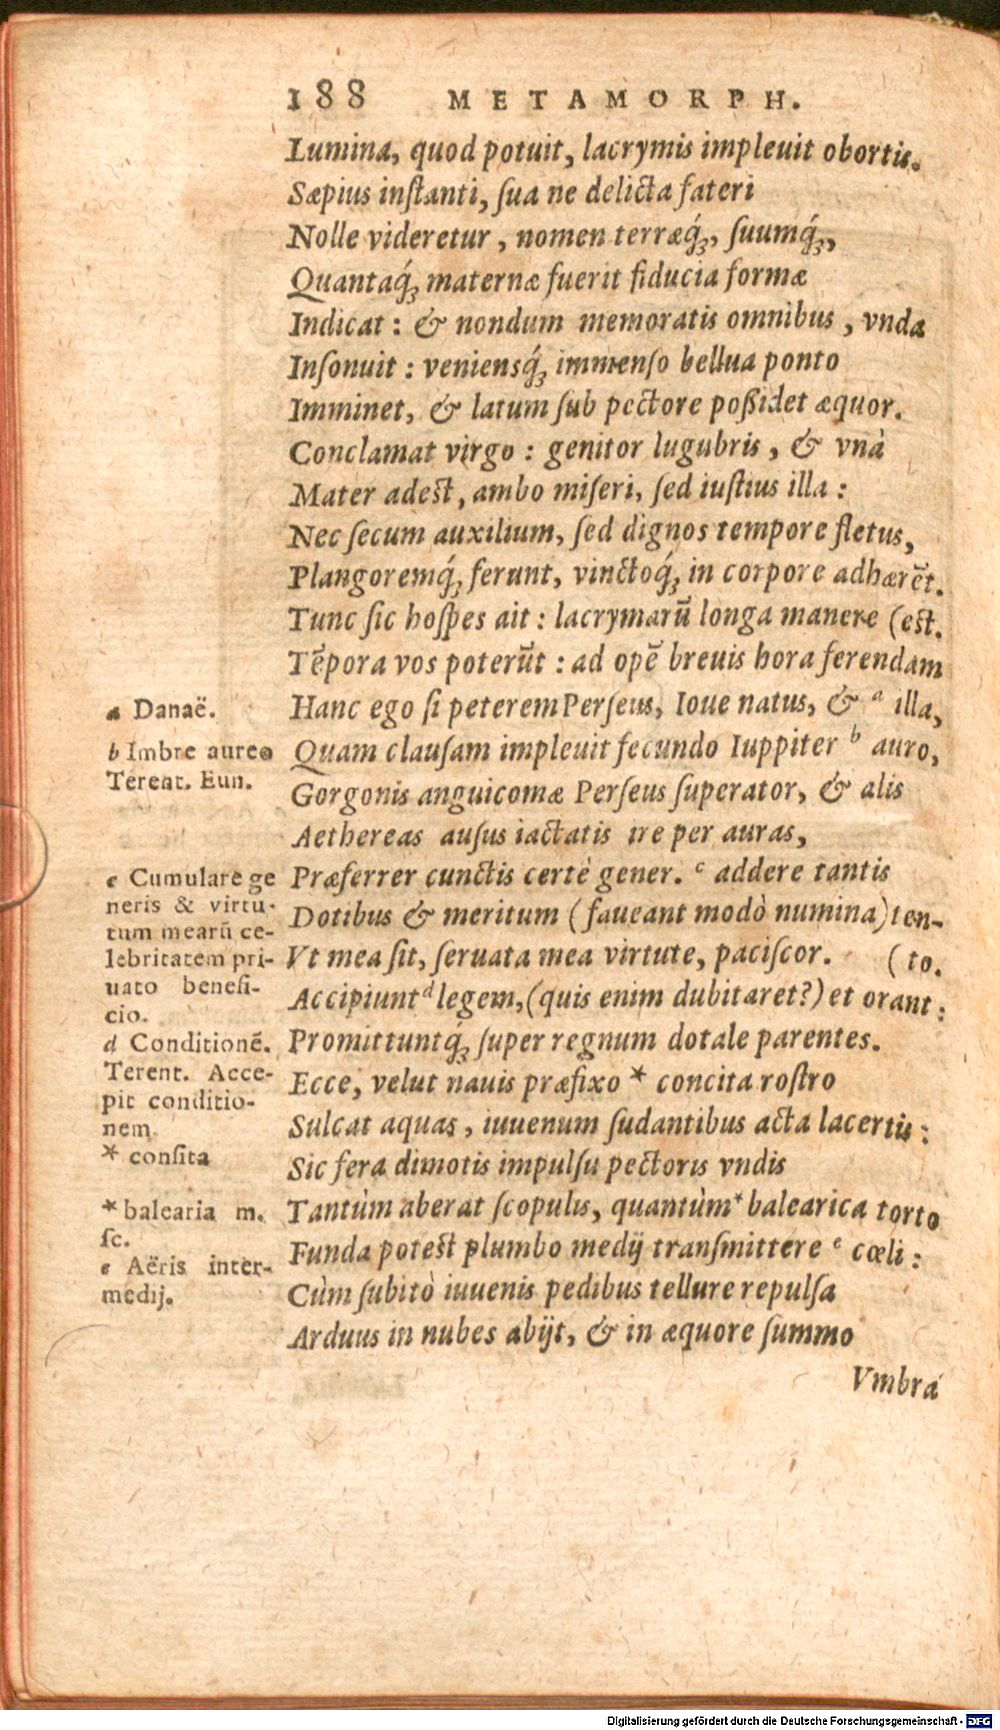 188 METAMORPH.
Lumina, quod potuit, lacrymis impleuit obortis.
Sæpius inſtanti, ſua ne delicta fateri
Nolle videretur, nomen terræq́ꝫ, ſuumq́ꝫ,
Quantaq́ꝫ maternæ fuerit fiducia formæ
Indicat: & nondum memoratis omnibus, vnda
Inſonuit: veniensq́ꝫ immenſo bellua ponto
Imminet, & latum ſub pectore poßidet æquor.
Conclamat virgo: genitor lugubris, & vnà
Mater adest, ambo miſeri, ſed iuſtius illa:
Nec ſecum auxilium, ſed dignos tempore fletus,
Plangoremq́ꝫ ferunt, vinctoq́ꝫ in corpore adhærẽt.
Tunc ſic hoſpes ait: lacrymarũ longa manere (est.
Tẽpora vos poterũt: ad opẽ breuis hora ferendam
Hanc ego ſi peterem Perſeus, Ioue natus, & a illa,
Quam clauſam impleuit fecundo Iuppiter b auro,
Gorgonis anguicomæ Perſeus ſuperator, & alis
Aethereas auſus iactatis ire per auras,
Præferrer cunctis certè gener. c addere tantis
Dotibus & meritum (faueant modò numina) ten-
Vt mea ſit, ſeruata mea virtute, paciſcor. (to.
Accipiunt d legem, (quis enim dubitaret?) et orant:
Promittuntq́ꝫ ſuper regnum dotale parentes.
Ecce, velut nauis præfixo * concita roſtro
Sulcat aquas, iuuenum ſudantibus acta lacertis:
Sic fera dimotis impulſu pectoris vndis
Tantùm aberat ſcopulis, quantùm * balearica torto
Funda potest plumbo medij tranſmittere e cœli:
Cùm ſubitò iuuenis pedibus tellure repulſa
Arduus in nubes abijt, & in æquore ſummo
Vmbra
a Danaë.
b Imbre aureo
Terent. Eun.
c Cumulare ge
neris & virtu-
tum mearũ ce-
lebritatem pri-
uato benefi-
cio.
d Conditionẽ.
Terent. Acce-
pit conditio-
nem.
* conſita
* balearia m.
ſc.
e Aëris inter-
medij.
Digitalisierung gefördert durch die Deutsche Forschungsgemeinschaft - DFG